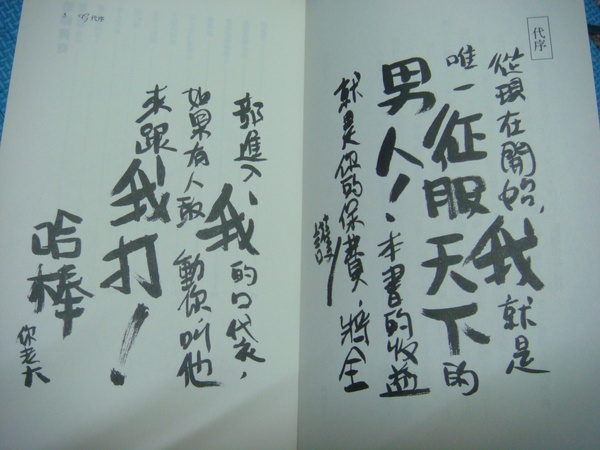 代序
從現在開始,我就是
唯一征服天下的
男人!本書的收益
就是你的保護費,將全
部進入我的口袋,
如果有人敢動你叫他
來跟我打!
哈棒
你老大
代序